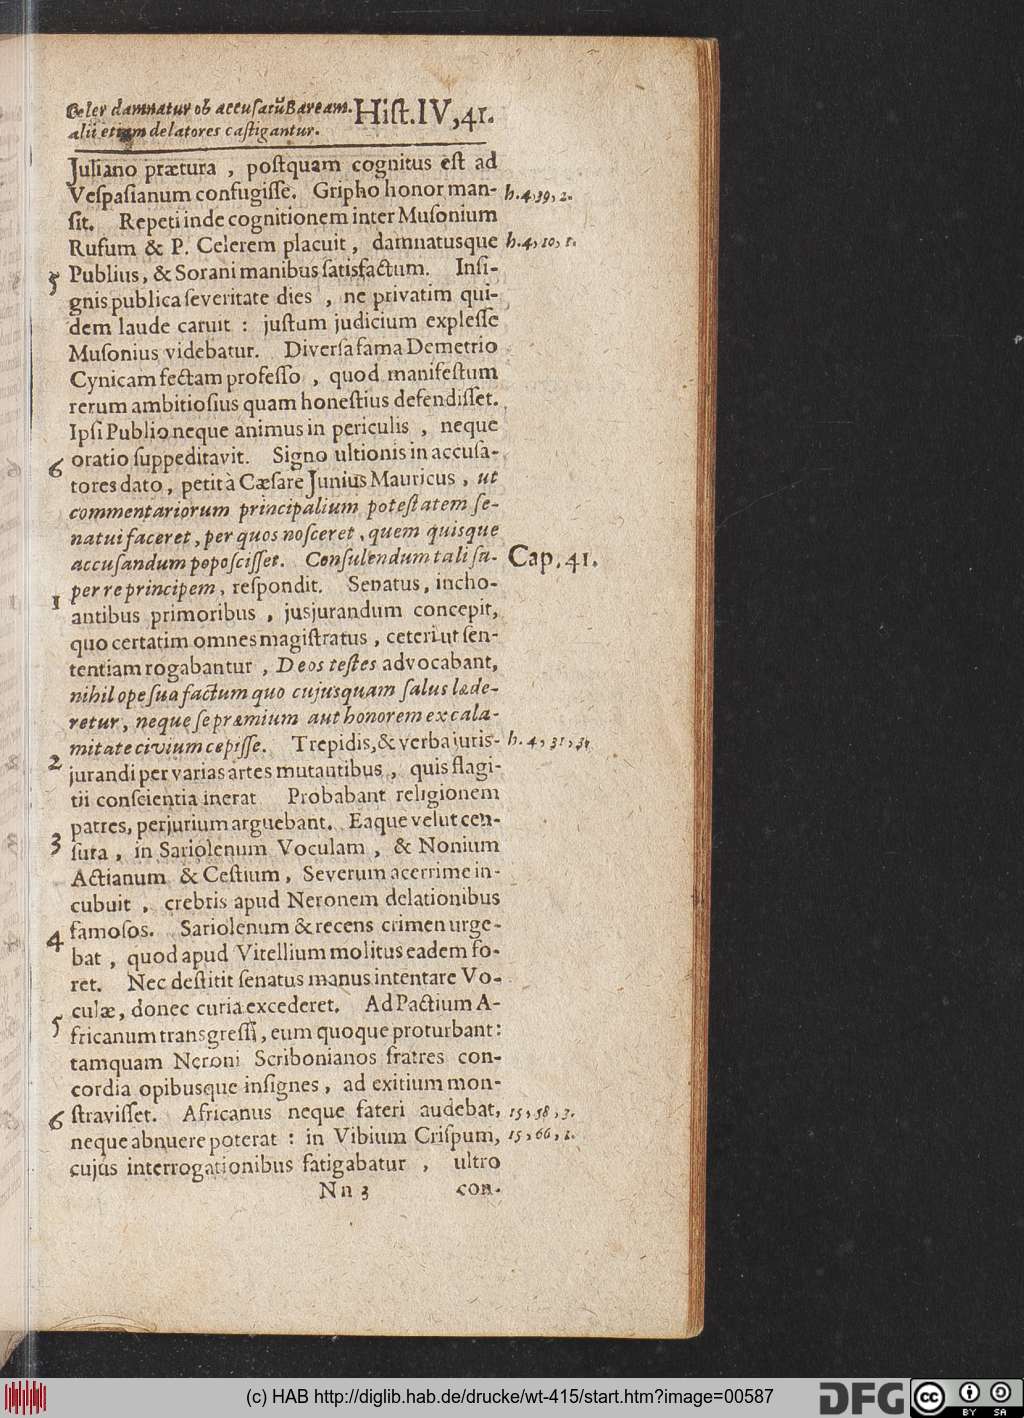 Celer damnatur ob accusatũ Baream. Hist. IV, 41.
alii etiam delatores castigantur.
Juliano prætura, postquam cognitus est ad
Vespasianum confugisse. Gripho honor man- h. 4, 39, 2.
sit. Repeti inde cognitionem inter Musonium
Rufum & P. Celerem placuit, damnatusque h. 4, 10, 1.
5 Publius, & Sorani manibus satisfactum. Insi-
gnis publica severitate dies, ne privatim qui-
dem laude caruit: justum judicium explesse
Musonius videbatur. Diversa fama Demetrio
Cynicam sectam professo, quod manifestum
rerum ambitiosius quam honestius defendisset.
Ipsi Publio neque animus in periculis, neque
6 oratio suppeditavit. Signo ultionis in accusa-
tores dato, petit à Cæsare Junius Mauricus, ut
commentariorum principalium potestatem se-
natui faceret, per quos nosceret, quem quisque
accusandum poposcisset. Consulendum tali su- Cap. 41.
1 per re principem, respondit. Senatus, incho-
antibus primoribus, jusjurandum concepit,
quo certatim omnes magistratus, ceteri ut sen-
tentiam rogabantur, Deos testes advocabant,
nihil ope sua factum quo cujusquam salus læde-
retur, neque se præmium aut honorem ex cala-
mitate civium cepisse. Trepidis, & verba juris- h. 4, 31, 3.
2 jurandi per varias artes mutantibus, quis flagi-
tii conscientia inerat Probabant religionem
patres, perjurium arguebant. Eaque velut cen-
3 sura, in Sariolenum Voculam, & Nonium
Actianum & Cestium, Severum acerrime in-
cubuit, crebris apud Neronem delationibus
famosos. Sariolenum & recens crimen urge-
4 bat, quod apud Vitellium molitus eadem fo-
ret. Nec destitit senatus manus intentare Vo-
culæ, donec curia excederet. Ad Pactium A-
5 fricanum transgressi, eum quoque proturbant:
tamquam Neroni Scribonianos fratres con-
cordia opibusque insignes, ad exitium mon-
stravisset. Africanus neque fateri audebat, 15, 58, 3.
6 neque abnuere poterat: in Vibium Crispum, 15, 66, 1.
cujus interrogationibus fatigabatur, ultro
Nn 3 con-
(c) HAB http://diglib.hab.de/drucke/wt-415/start.htm?image=00587
DFG
cc BY SA